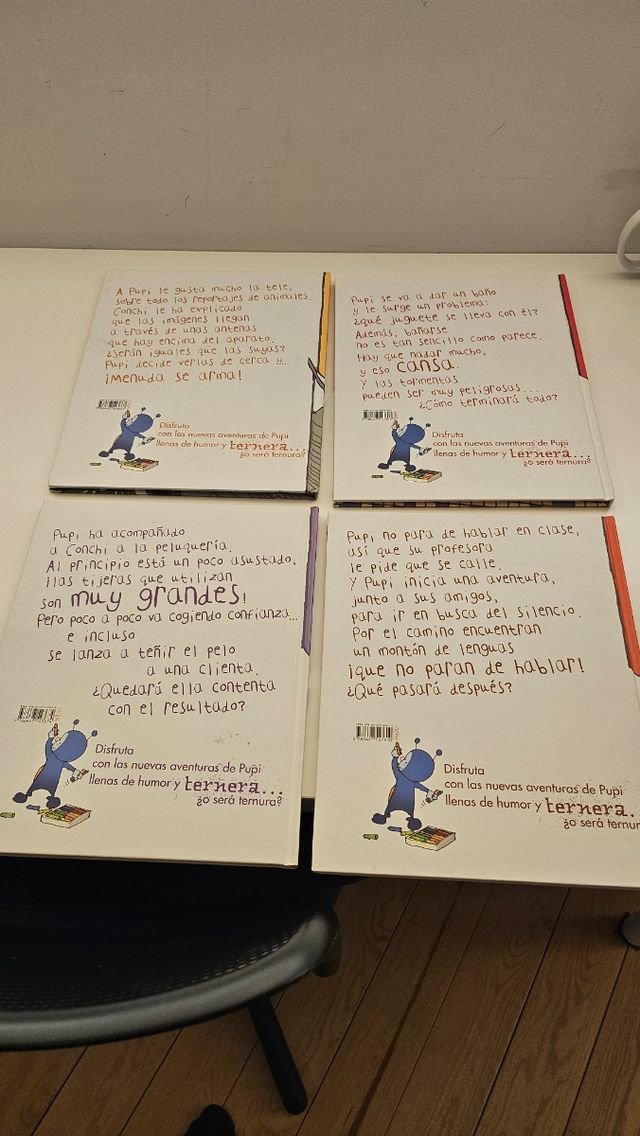 A Pupi le gusta mucho la tele,
sobre todo los reportajes de animales.
Conchi le ha explicado
que las imágenes llegan
a través de unas antenas
que hay encima del aparato.
¿Serán iguales que las suyas?
Pupi decide verlas de cerca y...
¡Menuda se arma!
Disfruta
con las nuevas aventuras de Pupi
llenas de humor y ternera...
¿o será ternura?
Pupi se va a dar un baño
y le surge un problema:
¿qué juguete se lleva con él?
Además, bañarse
no es tan sencillo como parece.
Hay que nadar mucho,
y eso cansa.
Y las tormentas
pueden ser muy peligrosas....
¿Cómo terminará todo?
Disfruta
con las nuevas aventuras de Pupi
llenas de humor y ternera...
¿o será ternura?
Pupi ha acompañado
a Conchi a la peluquería.
Al principio está un poco asustado,
¡las tijeras que utilizan
son muy grandes!
Pero poco a poco va cogiendo confianza...
e incluso
se lanza a teñir el pelo
a una clienta.
¿Quedará ella contenta
con el resultado?
Disfruta
con las nuevas aventuras de Pupi
llenas de humor y ternera...
¿o será ternura?
Pupi no para de hablar en clase,
así que su profesora
le pide que se calle.
Y Pupi inicia una aventura,
junto a sus amigos,
para ir en busca del silencio.
Por el camino encuentran
un montón de lenguas
¡que no paran de hablar!
¿Qué pasará después?
Disfruta
con las nuevas aventuras de Pupi
llenas de humor y ternera.
¿o será ternur